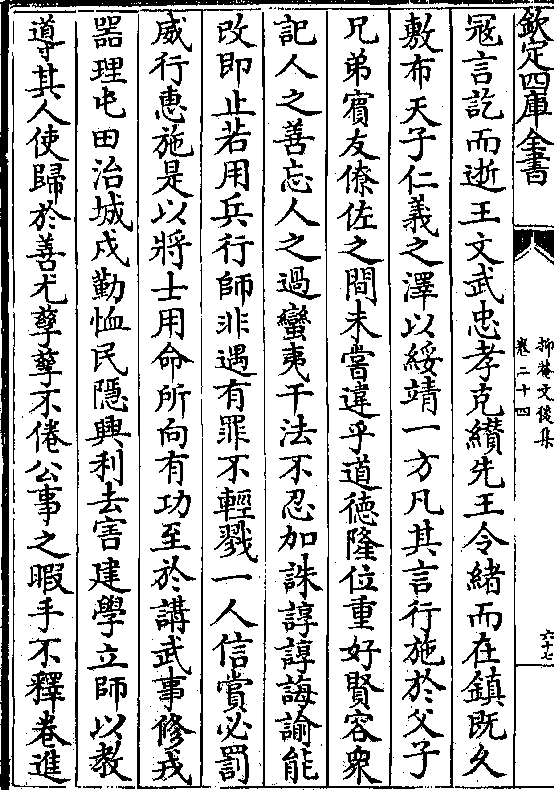 欽定四庫全書
抑菴文後集
卷二十四
六十七
冦言訖而逝王文武忠孝克纉先王令緒而在鎮既久
敷布天子仁義之澤以綏靖一方凡其言行施於父子
兄弟賔友僚佐之間未嘗違乎道德隆位重好賢容衆
記人之善忘人之過蠻夷干法不忍加誅諄諄誨諭能
改即止若用兵行師非遇有罪不輕戮一人信賞必罰
威行惠施是以將士用命所向有功至於講武事修戎
器理屯田治城戍勤恤民隱興利去害建學立師以教
導其人使歸於善尤孳孳不倦公事之暇手不釋卷進